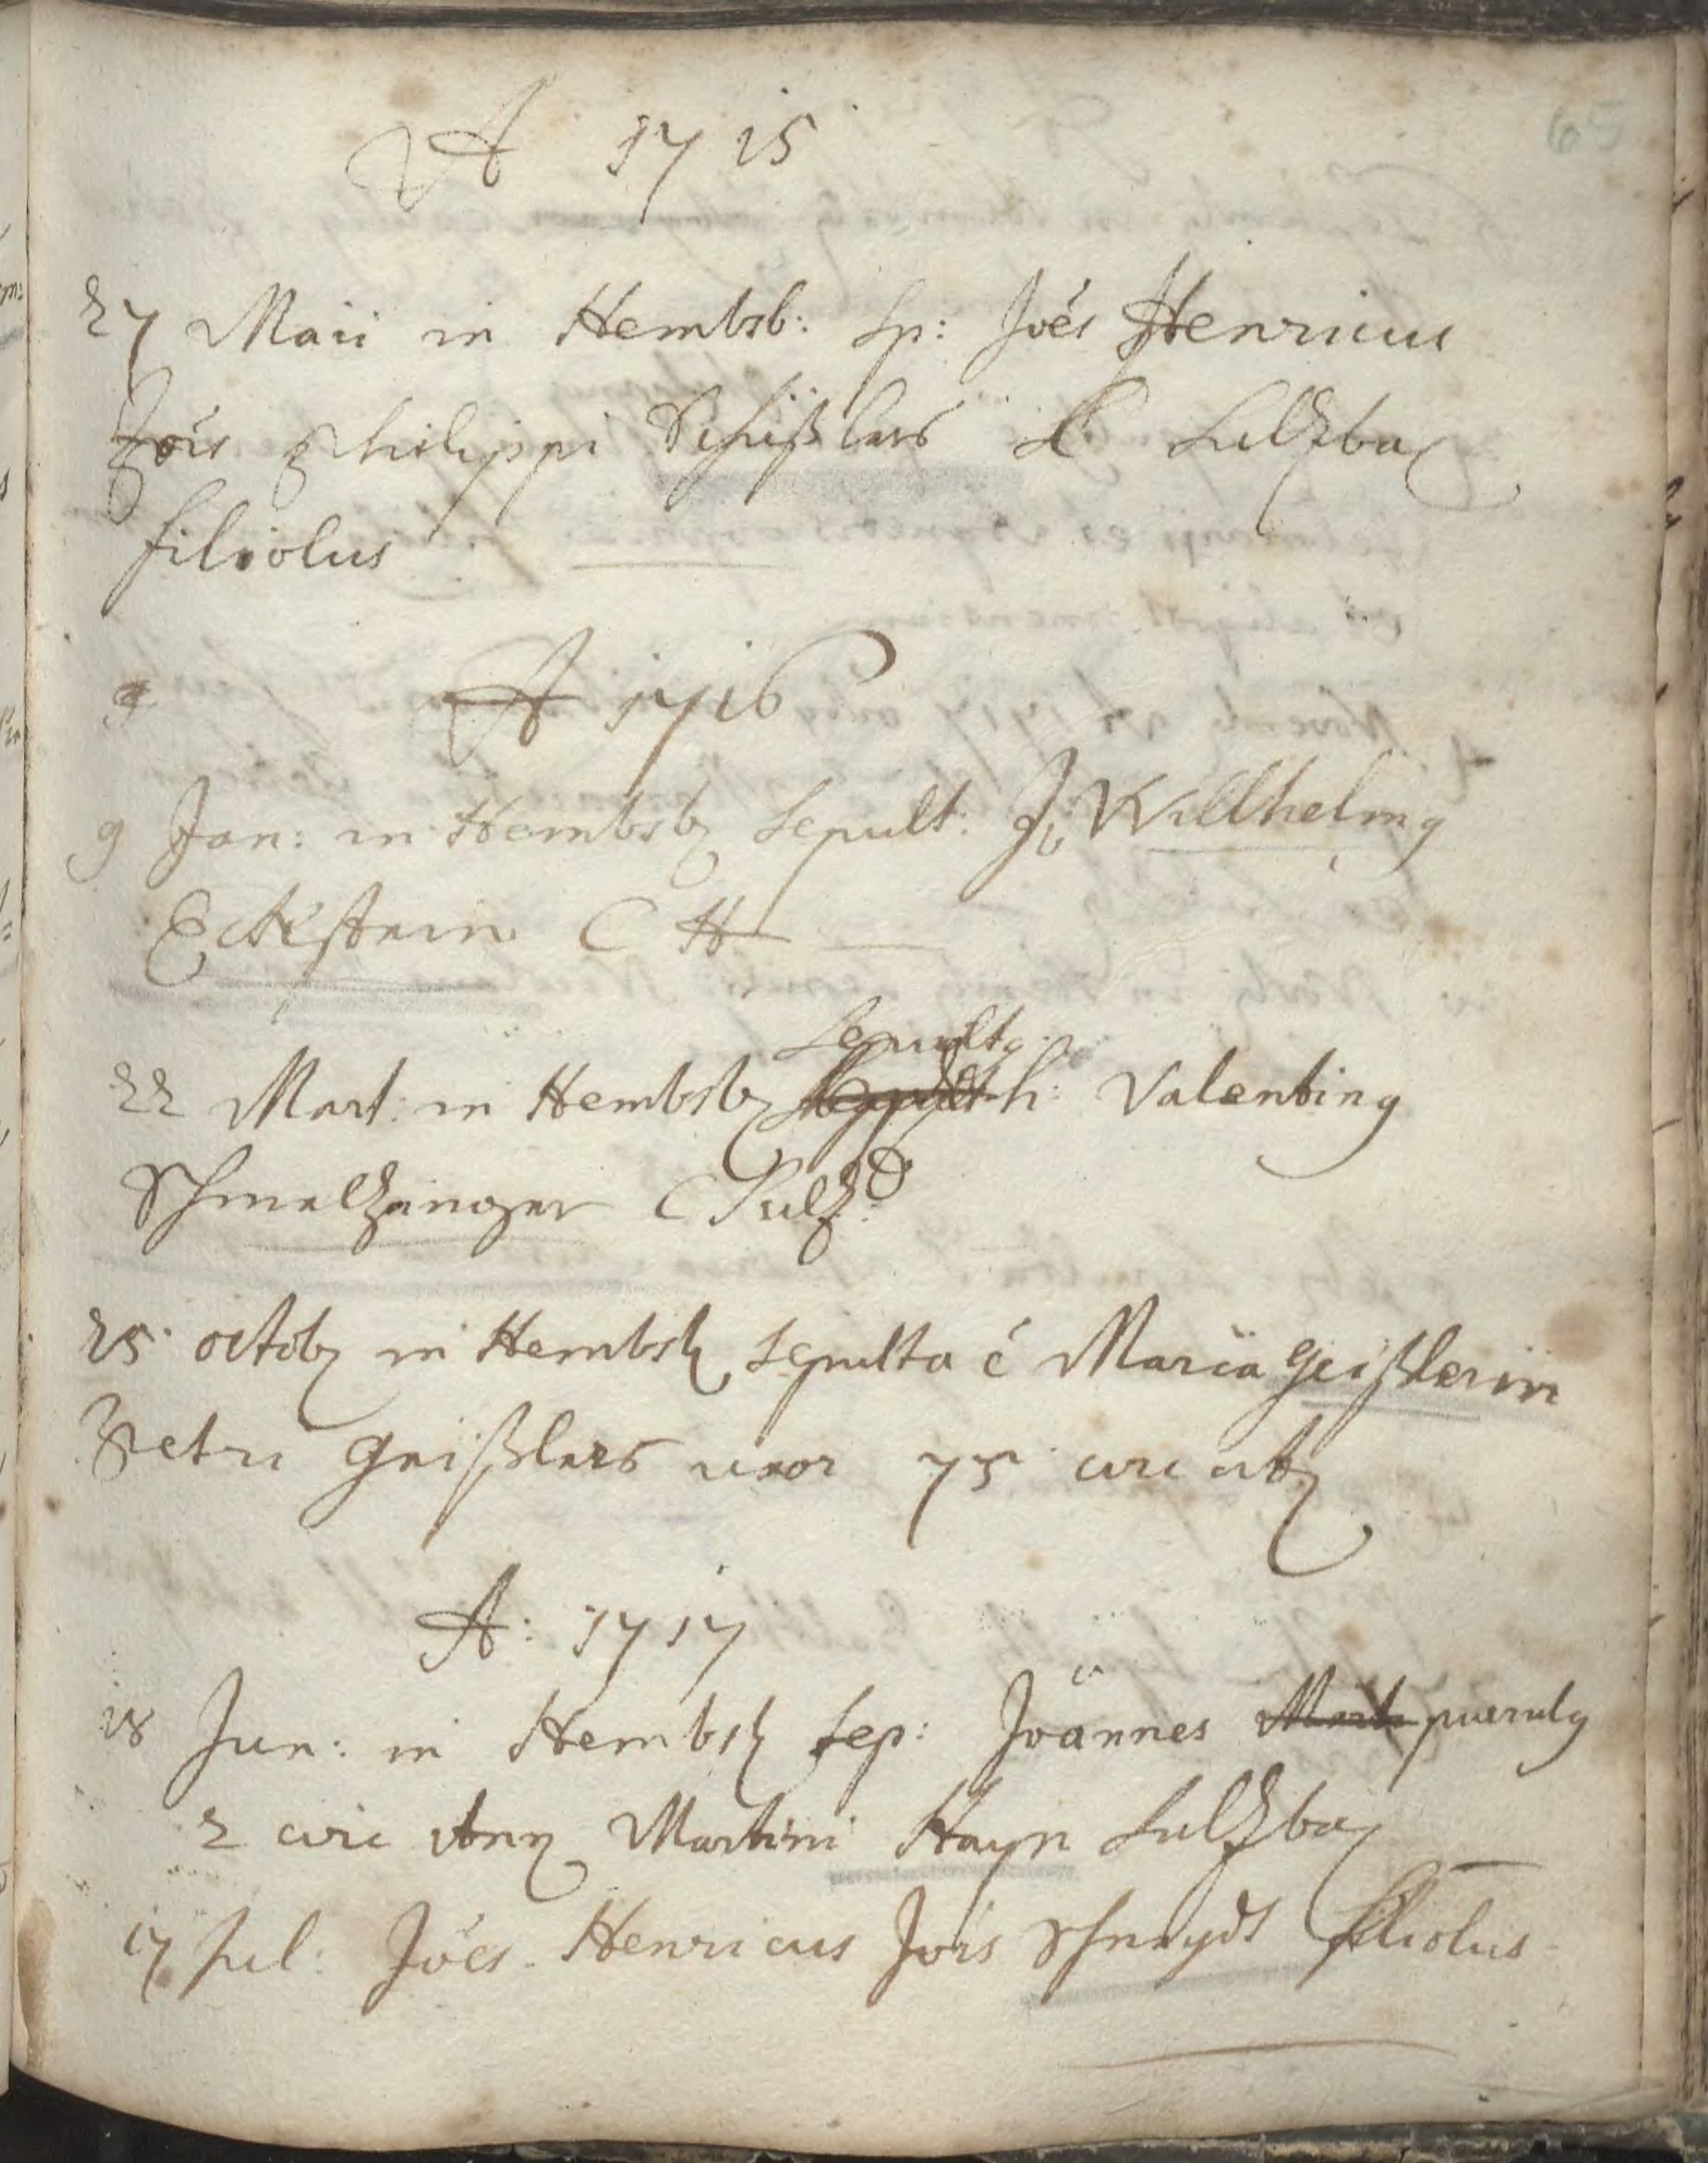 65
A 1715
27 Maii in Hembsb: Sp: Joés Henricus
Jois Philippi Schüßlers C Sulzbac
filiolus
A 1716
9 Jan: in Hembsb Sepult: J: Willhelmg
Eckhstein C H
Sepultg
22 Mart: in Hembsb h: Valenting
Schmelzinger C Sulzb:
25 octob in Hembsb Sepulta é Maria Geißlerin
Petri Geißlers uxor 75 circ at
A: 1717
18 Jun: in Hembsb Sep: Joännes Mart puerulg
2 circ Ann Martini Hayn Sulzbac
17 Jul: Joés Henricus Jois Schmydt filiolus